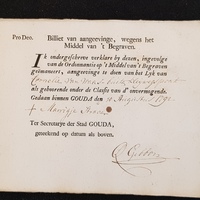 Pro Deo. Billiet van aangeevinge, wegens het
Middel van 't Begraven.
Ik ondergeschreven verklare by dezen, ingevolge
van de Ordonnantie op 't Middel van 't Begraven
geëmaneert, aangeevinge te doen van het Lyk van
Cornelia
als gehoorende onder de Classis van d' onvermogende.
Gedaan binnen GOUDA den August
Ter Secretarye der Stad GOUDA,
geteekend op datum als boven.